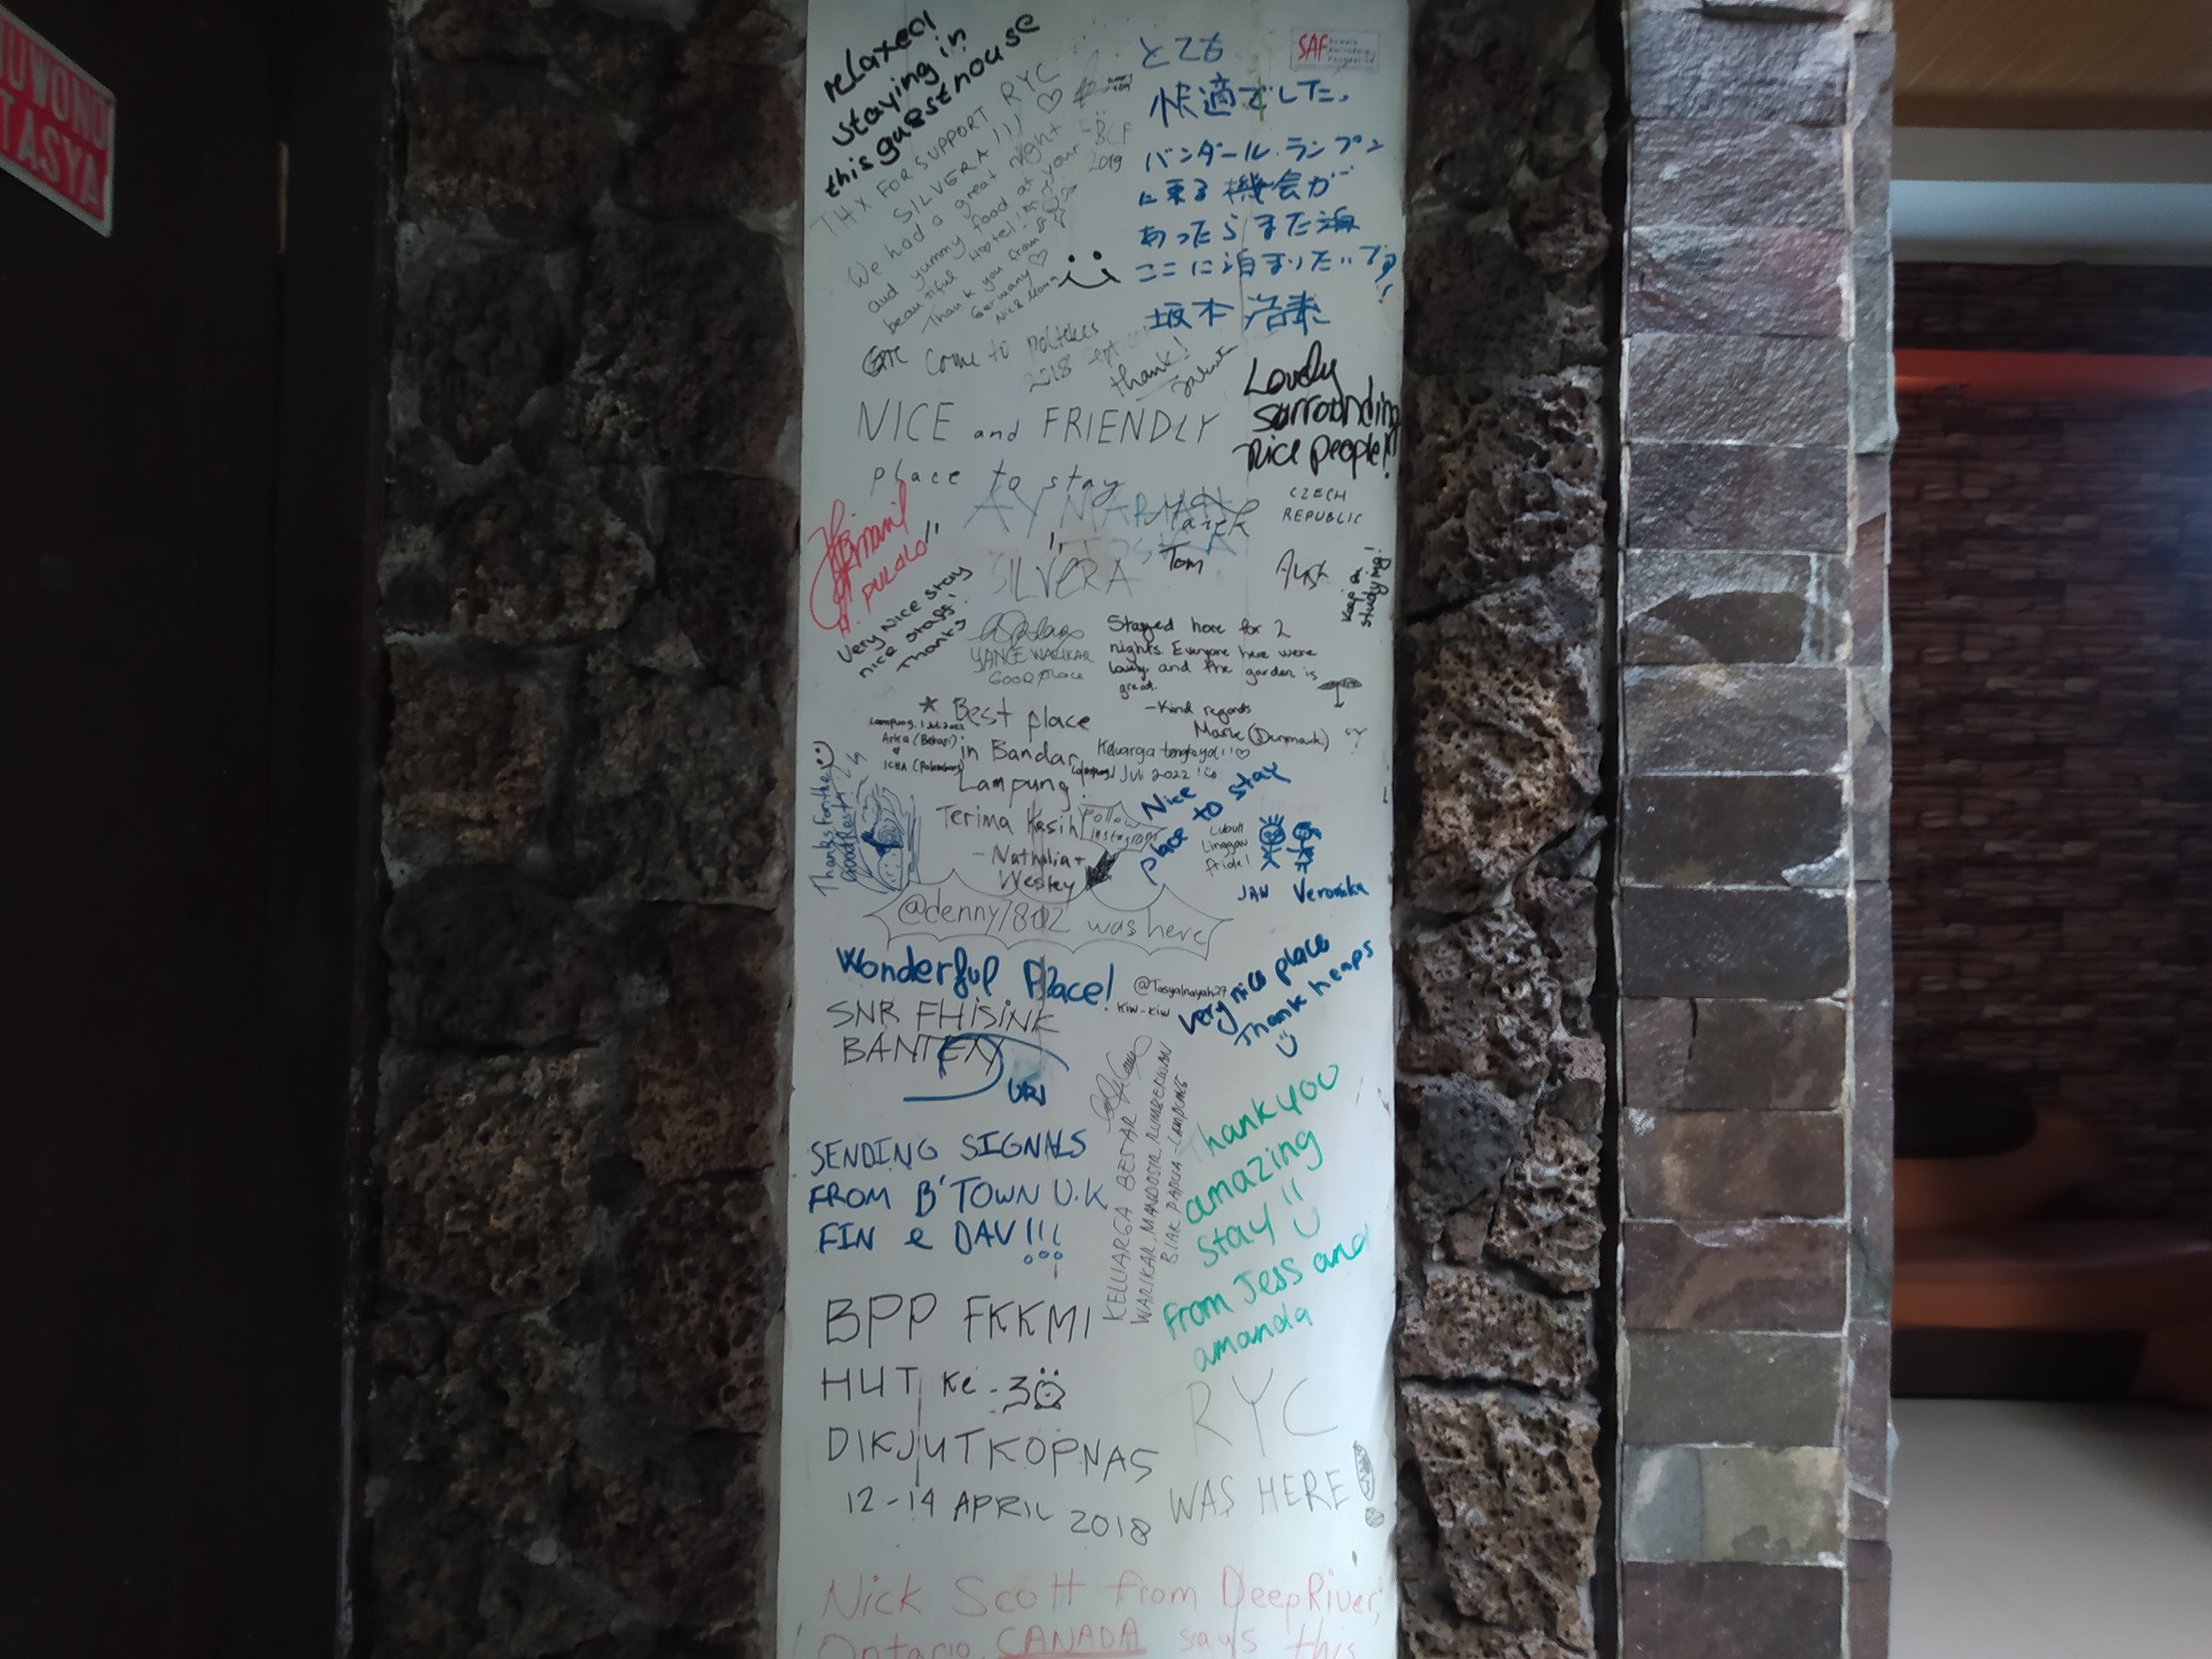 TASYA
relaxed
staying in
this guesthouse
THX FOR SUPPORT RYC
SILVERA!!!
We had a great night
and yummy food at your
beautiful Hotel!
Thank you from
Germany
BCF
2019
SAF
とても
快適でした。
バンダール.ランプン
に来る機会が
あったらまた
ここに泊まりたいです!
坂本
Come to Poltekes
2018 Sept
thank!
NICE and FRIENDLY
place to stay
Lovely
surrounding
nice people!!
CZECH
REPUBLIC
Marek
Tom
SILVERA
Keep on
studying!
Very Nice stay
nice staff!
Thanks
YANCE WARIKAR
GOOD PLACE
Stayed here for 2
nights. Everyone here were
lovely, and the garden is
great.
-Kind regards
Marie (Denmark)
* Best place
in Bandar
Lampung!
Terima Kasih
- Nathalia +
Wesley
Arka (Bekasi)
ICHA (Palembang)
Juli 2022
Thanks for the
Good Rest!
Follow
instagram
Nice
place to stay
Lubuk
Linggau
Pride!
JAN Veronika
@denny1802 was here
Wonderful Place!
@Tasyalnayah29
kiw-kiw
very nice place
Thank heaps
SNR FHISINK
BANTEN
URI
SENDING SIGNALS
FROM B'TOWN U.K
FIN & DAV!!!
KELUARGA BESAR
WARIKAR, MANDOSIR, RUMBERWON
BIAK PAPUA - LAMPUNG
Thank you
amazing
stay!!
from Jess and
amanda
BPP FKKMI
HUT Ke-30
DIKJUTKOPNAS
12-14 APRIL 2018
RYC
WAS HERE!
Nick Scott from Deep River,
Ontario, CANADA says this